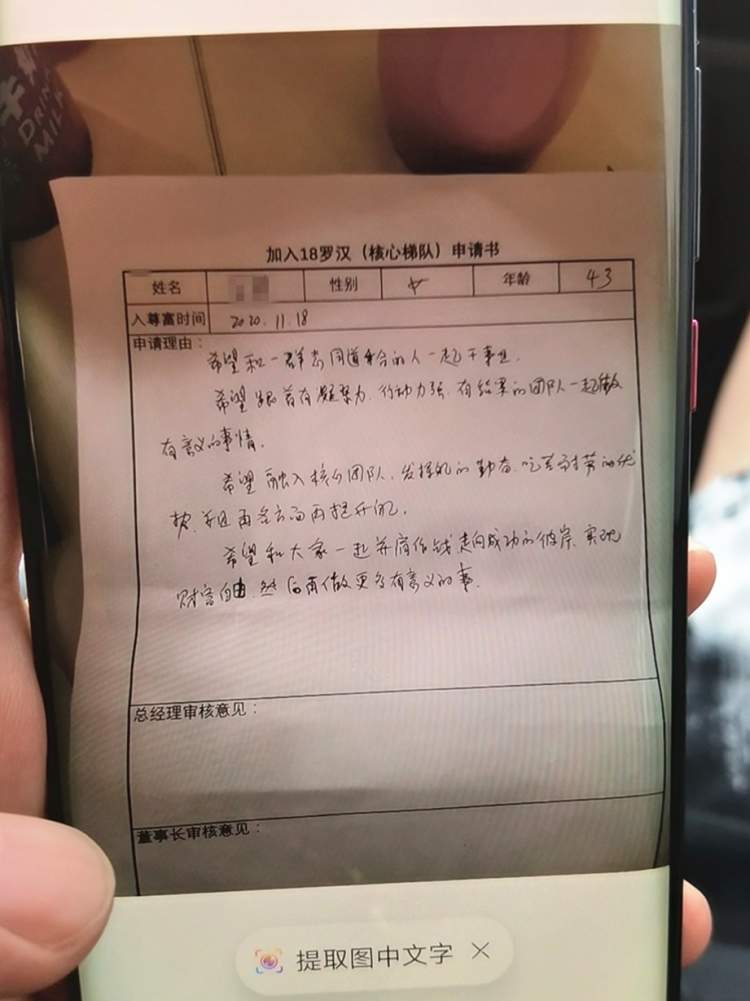 牛奶
DRINK
MILK
加入18罗汉（核心梯队）申请书
姓名 性别 女 年龄 43
入尊富时间 2020.11.18
申请理由：
希望和一群志同道合的人一起干事业.
希望跟着有凝聚力、行动力强、有结果的团队一起做
有意义的事情.
希望融入核心团队、发挥我的勤奋、吃苦耐劳的优
势、并且再各方面再提升自己.
希望和大家一起并肩作战走向成功的彼岸、实现
财富自由.然后再做更多有意义的事.
总经理审核意见：
董事长审核意见：
提取图中文字 ×